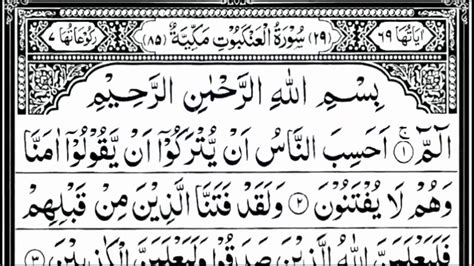 اٰیَاتُهَا ٦٩ (٢٩) سُوْرَةُ الْعَنْكَبُوْتِ مَكِّیَّةٌ (٨٥) رُكُوْعَاتُهَا ٧
بِسْمِ اللّٰهِ الرَّحْمٰنِ الرَّحِیْمِ
الٓمّٓ ۚ ١ اَحَسِبَ النَّاسُ اَنْ یُّتْرَكُوْۤا اَنْ یَّقُوْلُوْۤا اٰمَنَّا
وَهُمْ لَا یُفْتَنُوْنَ ٢ وَلَقَدْ فَتَنَّا الَّذِیْنَ مِنْ قَبْلِهِمْ
فَلَیَعْلَمَنَّ اللّٰهُ الَّذِیْنَ صَدَقُوْا وَلَیَعْلَمَنَّ الْكٰذِبِیْنَ ٣